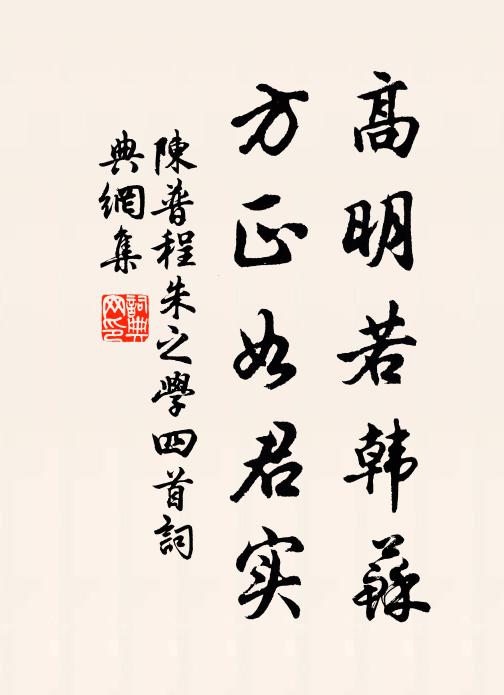 高明若韩蘇
方正如君实
陳普程朱之學四首詞
典網集
詞典网印